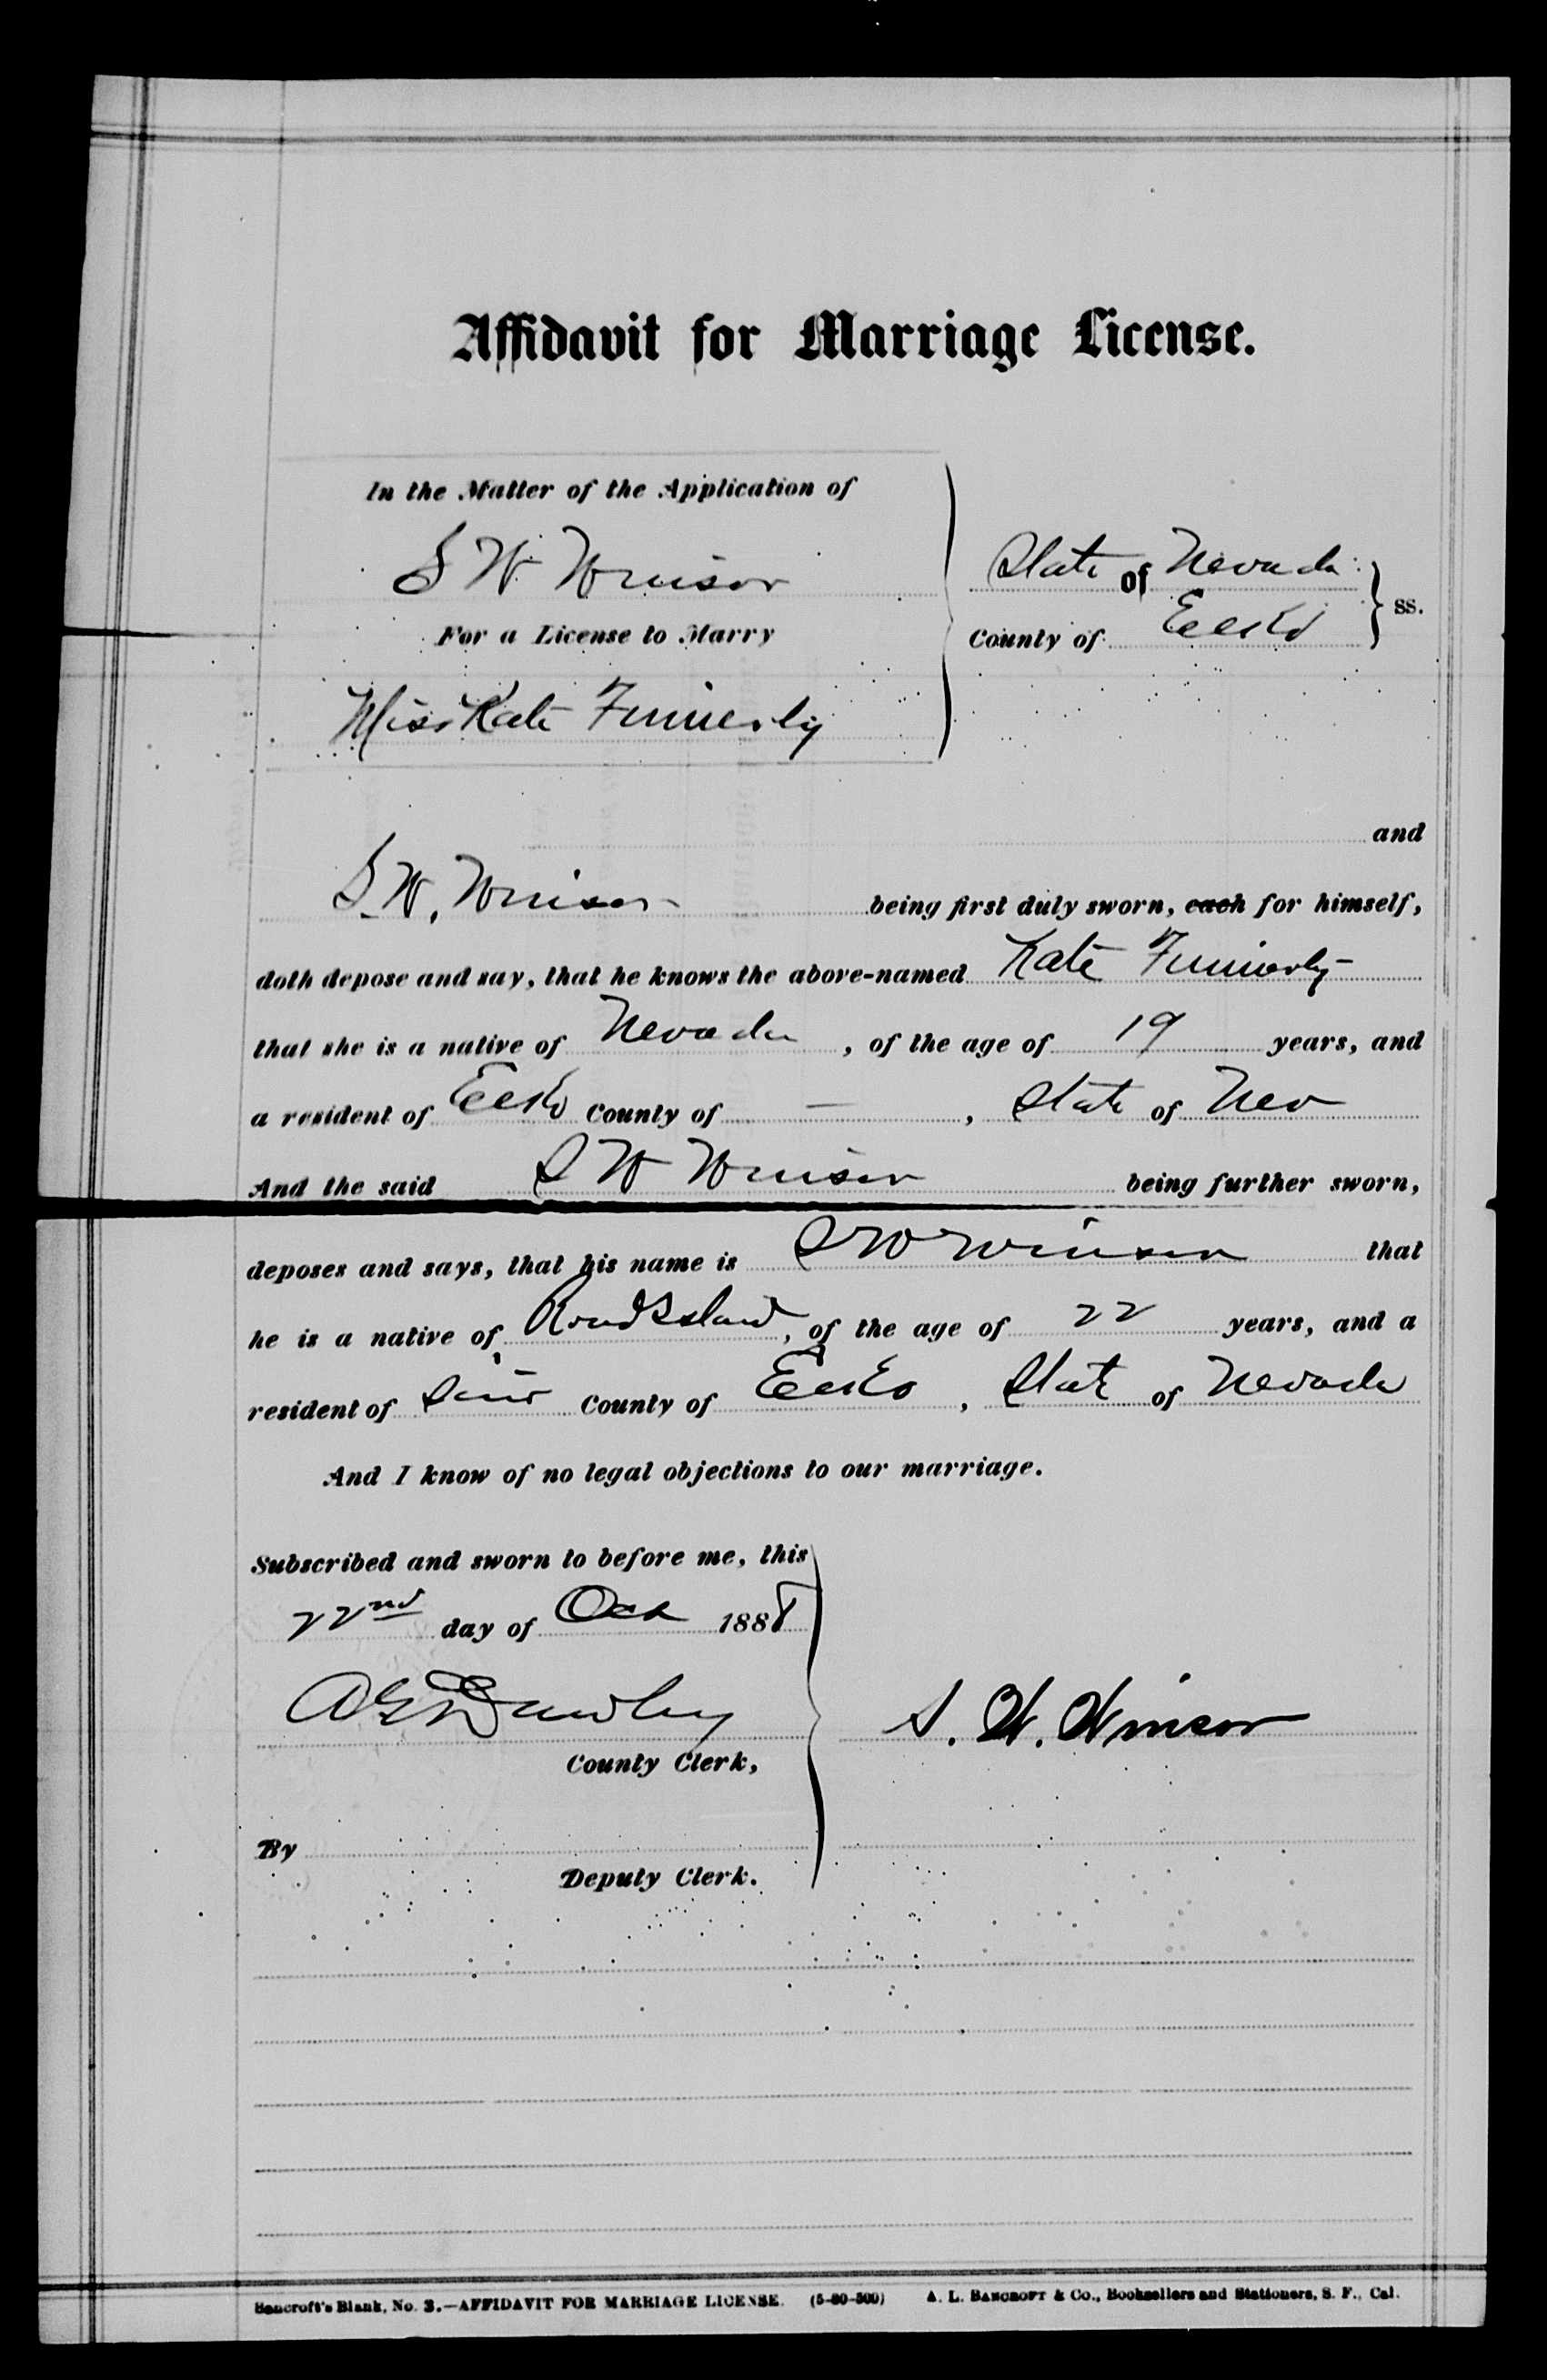 Affidavit for Marriage License.
In the Matter of the Application of
S W Winsor
For a License to Marry
Miss Kate
State of Nevada
County of Elko
ss.
and
S. W. Winsor being first duly sworn, each for himself,
doth depose and say, that he knows the above-named Kate
that she is a native of Nevada, of the age of 19 years, and
a resident of Elko County of —, State of Nev
And the said S W Winsor being further sworn,
deposes and says, that his name is S W Winsor that
he is a native of Rhod Island, of the age of 22 years, and a
resident of County of Elko, State of Nevada
And I know of no legal objections to our marriage.
Subscribed and sworn to before me, this
22nd day of Oct 1888
Dawley
County Clerk,
S. W. Winsor
By
Deputy Clerk.
Bancroft's Blank, No. 3.—AFFIDAVIT FOR MARRIAGE LICENSE. (5-80-500) A. L. BANCROFT & Co., Booksellers and Stationers, S. F., Cal.